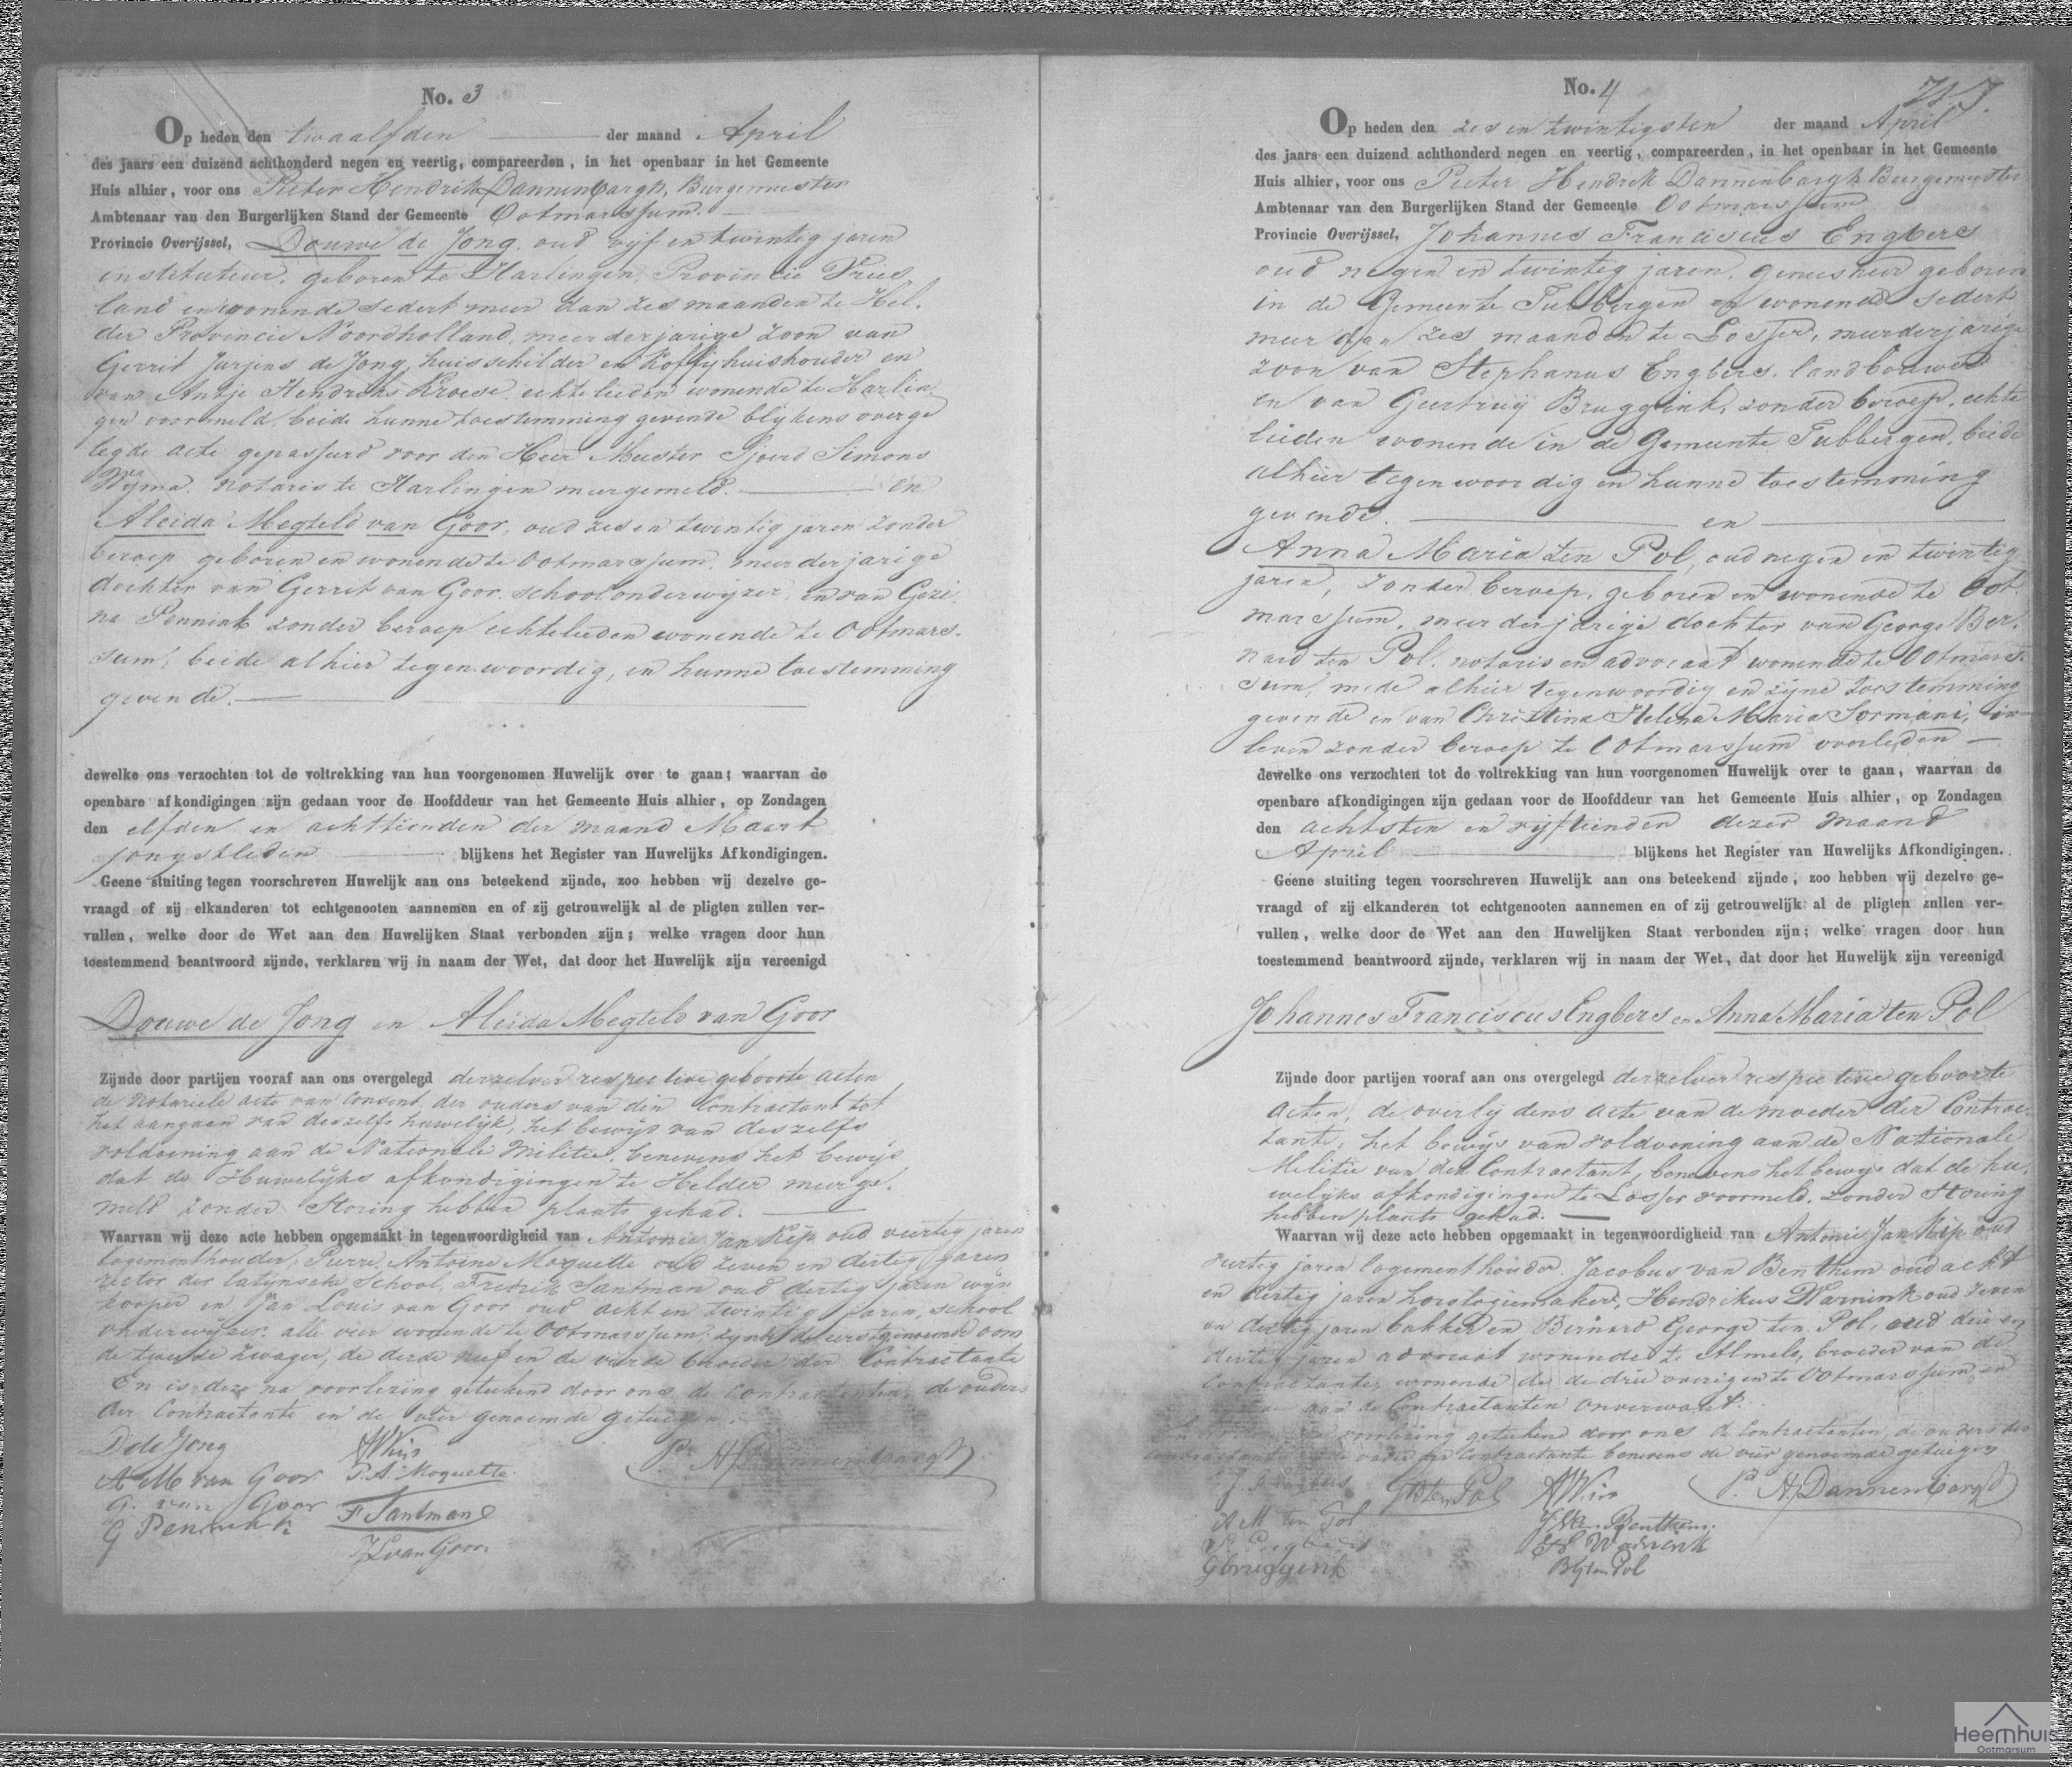 No. 3
Op heden den twaalfden der maand April
des jaars een duizend achthonderd negen en veertig, compareerden, in het openbaar in het Gemeente
Huis alhier, voor ons Pieter Hendrik Dannenbargh, Burgemeester
Ambtenaar van den Burgerlijken Stand der Gemeente Ootmarssum.
Provincie Overijssel, Douwe de Jong, oud vijf en twintig jaren
instituteur, geboren te Harlingen, Provincie Vries,
land en wonende sedert meer dan zes maanden te Hel,
der Provincie Noordholland, meerderjarige zoon van
Gerrit Jurjens de Jong, huisschilder en Koffijhuishouder en
van Antje Hendriks Kroese, echtelieden wonende te Harlin,
gen voormeld, beide hunne toestemming gevende blijkens overge
legde acte gepasseerd voor den Heer Meester Sjoerd Simons
Wijma, notaris te Harlingen meergemeld. en
Aleida Megteld van Goor, oud zes en twintig jaren zonder
beroep geboren en wonende te Ootmarssum, meerderjarige
dochter van Gerrit van Goor, schoolonderwijzer, en van Gezi,
na Pennink zonder beroep echtelieden wonende te Ootmars,
sum, beide alhier tegenwoordig, en hunne toestemming
gevende.
dewelke ons verzochten tot de voltrekking van hun voorgenomen Huwelijk over te gaan; waarvan de
openbare afkondigingen zijn gedaan voor de Hoofddeur van het Gemeente Huis alhier, op Zondagen
den elfden en achttienden der maand Maart
jongstleden blijkens het Register van Huwelijks Afkondigingen.
Geene stuiting tegen voorschreven Huwelijk aan ons beteekend zijnde, zoo hebben wij dezelve ge-
vraagd of zij elkanderen tot echtgenooten aannemen en of zij getrouwelijk al de pligten zullen ver-
vullen, welke door de Wet aan den Huwelijken Staat verbonden zijn; welke vragen door hun
toestemmend beantwoord zijnde, verklaren wij in naam der Wet, dat door het Huwelijk zijn vereenigd
Douwe de Jong en Aleida Megteld van Goor
Zijnde door partijen vooraf aan ons overgelegd derzelver respective geboorte acten
de notariele acte van Consent der ouders van den Contractant tot
het aangaan van deszelfs huwelijk, het bewijs van deszelfs
voldoening aan de Nationale Militie, benevens het bewijs
dat de Huwelijks afkondigingen te Helder meerge,
meld zonder Storing hebben plaats gehad.
Waarvan wij deze acte hebben opgemaakt in tegenwoordigheid van Antonie Jan Kip oud veertig jaren
logementhouder, Pierre Antoine Moquette oud zeven en dertig jaren
rector der latijnsche School, Fredrik Santman oud dertig jaren wijn
kooper en Jan Louis van Goor oud acht en twintig jaren, school
onderwijzer, alle vier wonende te Ootmarssum, zijnde de eerstgenoemde oom
de tweede zwager, de derde neef en de vierde broeder der Contractante
En is deze na voorlezing geteekend door ons de Contractanten, de ouders
der Contractante en de vier genoemde getuigen.
D de Jong
A M van Goor
G. van Goor
G Pennink
A J Kip
P. A. Moquette
F Santman
J L van Goor
P. H. Dannenbargh
No. 4
Op heden den zes en twintigsten der maand April
des jaars een duizend achthonderd negen en veertig, compareerden, in het openbaar in het Gemeente
Huis alhier, voor ons Pieter Hendrik Dannenbargh Burgemeester
Ambtenaar van den Burgerlijken Stand der Gemeente Ootmarssum
Provincie Overijssel, Johannes Franciscus Engbers
oud negen en twintig jaren, geneesheer geboren
in de Gemeente Tubbergen en wonende sedert
meer dan zes maanden te Losser, meerderjarige
zoon van Stephanus Engbers, landbouwer
en van Geertruij Bruggink, zonder beroep, echte
lieden wonende in de Gemeente Tubbergen, beide
alhier tegenwoordig en hunne toestemming
gevende. en
Anna Maria ten Pol, oud negen en twintig
jaren, zonder beroep, geboren en wonende te Oot,
marssum, meerderjarige dochter van George Ber,
nard ten Pol, notaris en advocaat wonende te Ootmars,
sum, mede alhier tegenwoordig en zijne toestemming
gevende en van Christina Helena Maria Sormani, in
leven zonder beroep te Ootmarssum overleden
dewelke ons verzochten tot de voltrekking van hun voorgenomen Huwelijk over te gaan, waarvan de
openbare afkondigingen zijn gedaan voor de Hoofddeur van het Gemeente Huis alhier, op Zondagen
den achtsten en vijftienden dezer maand
April blijkens het Register van Huwelijks Afkondigingen.
Geene stuiting tegen voorschreven Huwelijk aan ons beteekend zijnde, zoo hebben wij dezelve ge-
vraagd of zij elkanderen tot echtgenooten aannemen en of zij getrouwelijk al de pligten zullen ver-
vullen, welke door de Wet aan den Huwelijken Staat verbonden zijn; welke vragen door hun
toestemmend beantwoord zijnde, verklaren wij in naam der Wet, dat door het Huwelijk zijn vereenigd
Johannes Franciscus Engbers en Anna Maria ten Pol
Zijnde door partijen vooraf aan ons overgelegd derzelver respective geboorte
acten, de overlijdens acte van de moeder der Contrac,
tante, het bewijs van voldoening aan de Nationale
Militie van den Contractant, benevens het bewijs dat de hu,
welijks afkondigingen te Losser voormeld, zonder Storing
hebben plaats gehad.
Waarvan wij deze acte hebben opgemaakt in tegenwoordigheid van Antonie Jan Kip oud
veertig jaren logementhouder, Jacobus van Benthem oud acht
en dertig jaren horologiemaker, Hendrikus Warnink oud zeven
en dertig jaren bakker en Bernard George ten Pol, oud drie en
dertig jaren advocaat wonende te Almelo, broeder van de
Contractante, wonende de drie overigen te Ootmarssum en
aan de Contractanten onverwant.
voorlezing geteekend door ons de Contractanten, de ouders des
Contractants de vader der Contractante benevens de vier genoemde getuigen
J. F. Engbers
A M ten Pol
G bruggink
G B ten Pol
A J Kip
J. van Benthem
H Warnink
B G ten Pol
P. H. Dannenbargh
Heemhuis
Ootmarsum